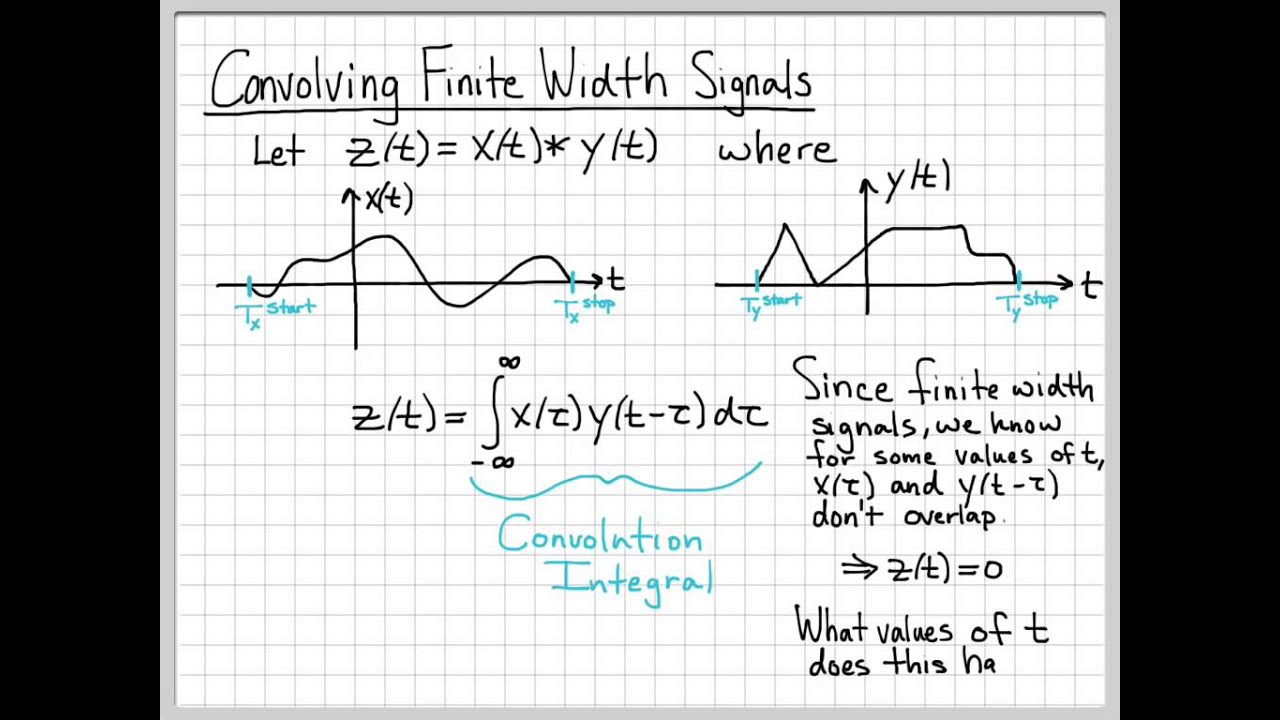 Convolving Finite Width Signals
Let z(t) = x(t) * y(t) where
x(t)
t
Tx start
Tx stop
y(t)
t
Ty start
Ty stop
z(t) = ∫_{-∞}^{∞} x(τ) y(t-τ) dτ
Convolution
Integral
Since finite width
signals, we know
for some values of t,
x(τ) and y(t-τ)
don't overlap.
⇒ z(t) = 0
What values of t
does this ha